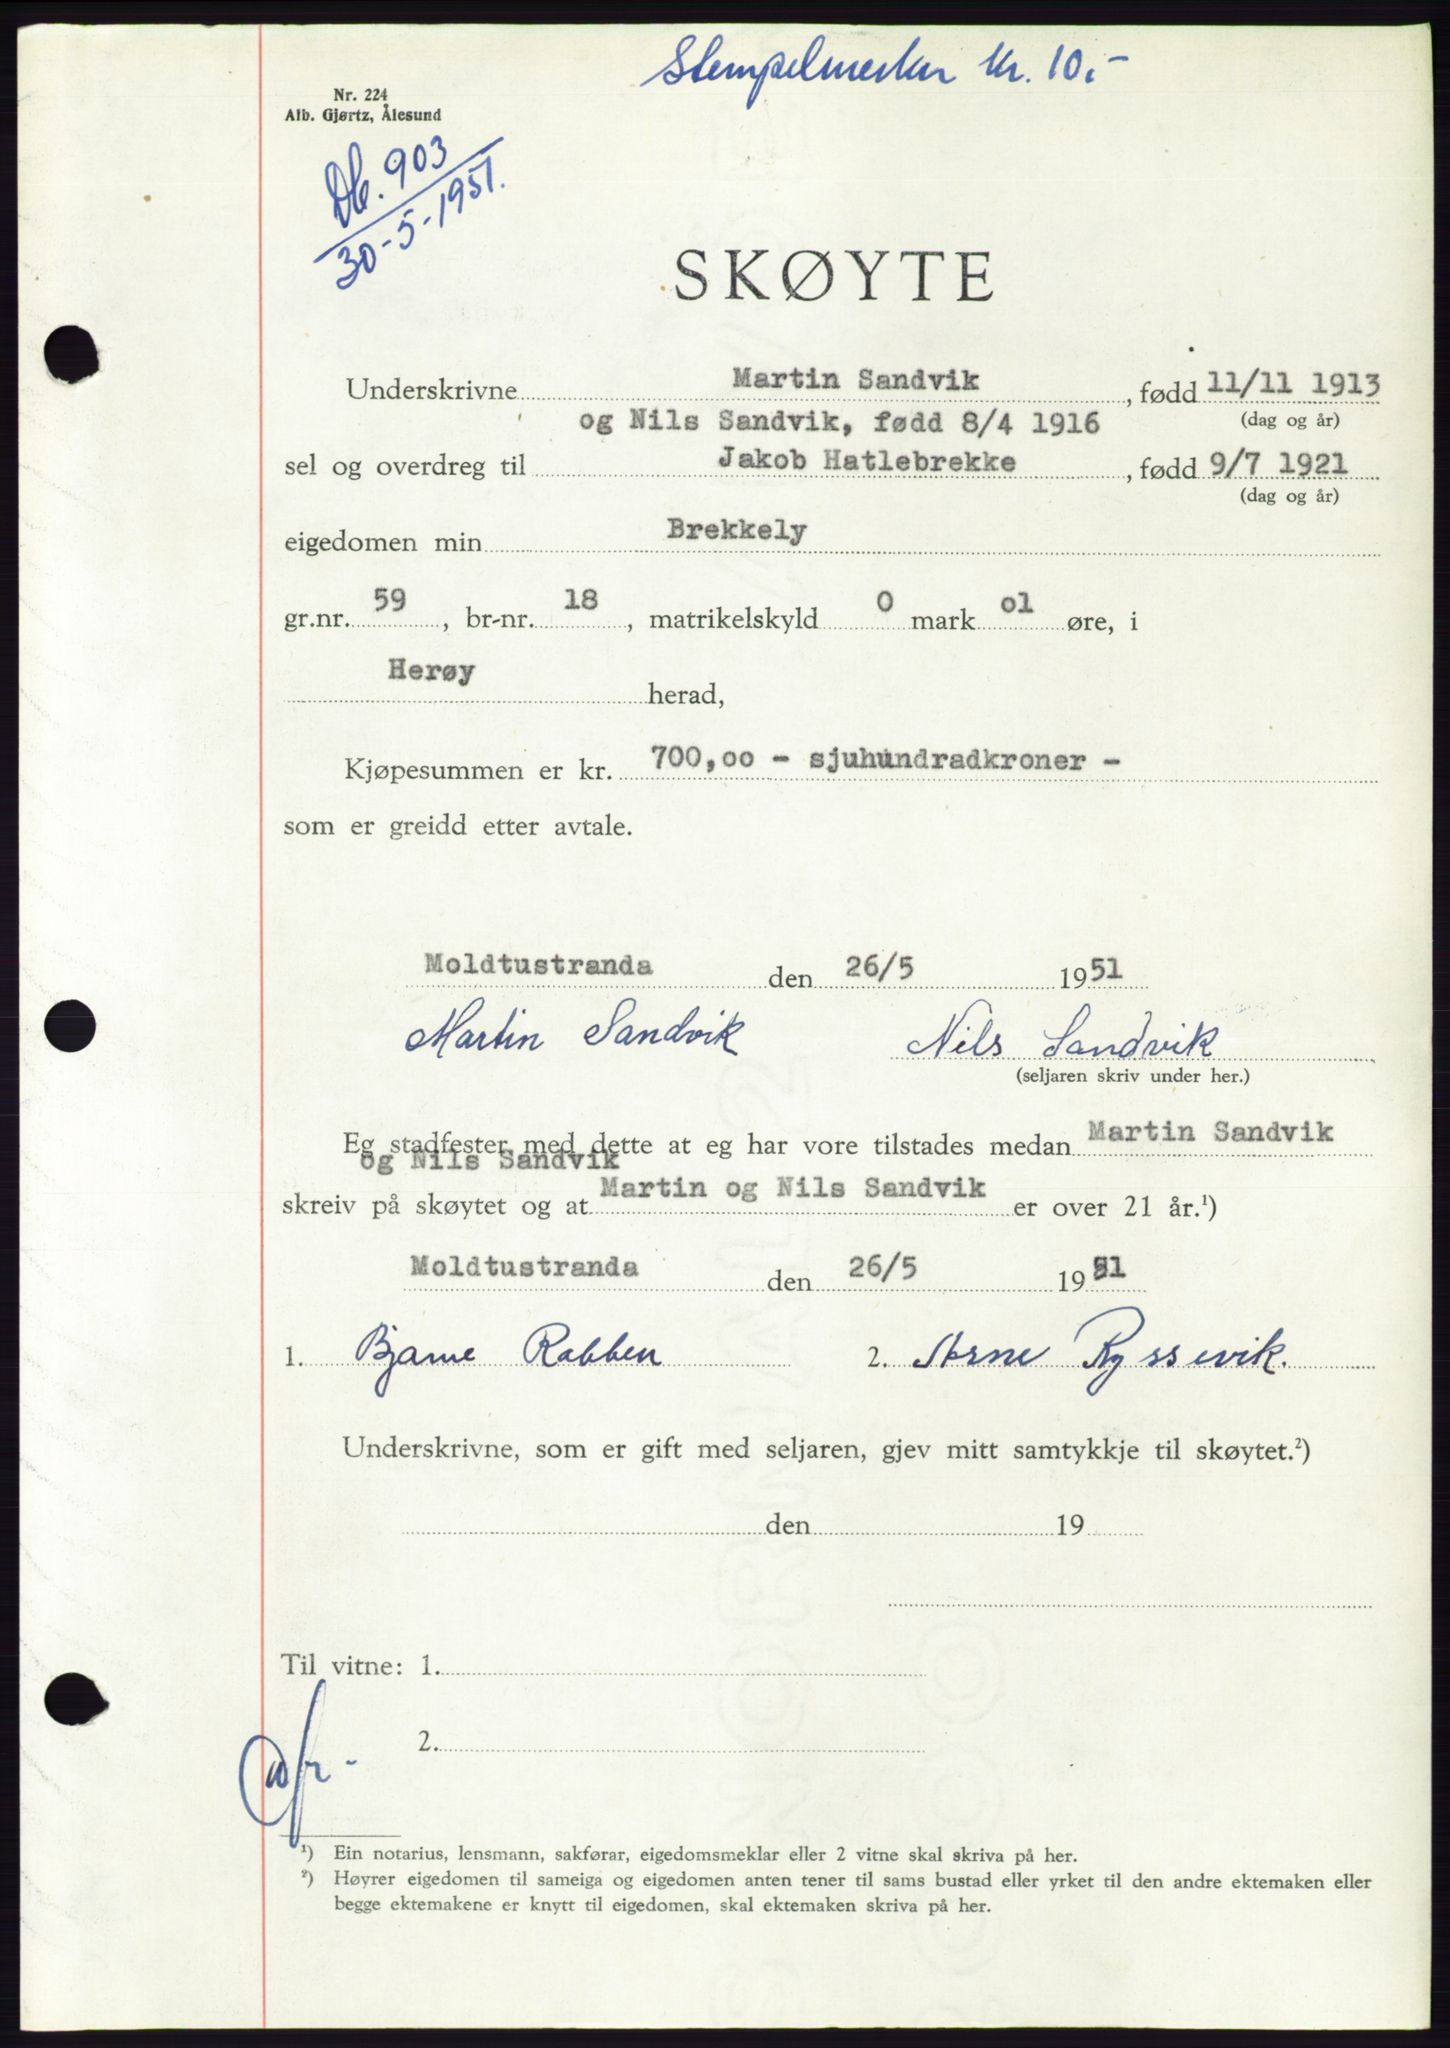 Stempelmerker kr. 10,-
Nr. 224
Alb. Gjørtz, Ålesund
Db. 903
30-5-1951.
SKØYTE
Underskrivne Martin Sandvik, fødd 11/11 1913
og Nils Sandvik, fødd 8/4 1916 (dag og år)
sel og overdreg til Jakob Hatlebrekke, fødd 9/7 1921
(dag og år)
eigedomen min Brekkely
gr.nr. 59, br-nr. 18, matrikelskyld 0 mark 01 øre, i
Herøy herad,
Kjøpesummen er kr. 700,00 - sjuhundradkroner -
som er greidd etter avtale.
Moldtustranda den 26/5 1951
Martin Sandvik Nils Sandvik
(seljaren skriv under her.)
Eg stadfester med dette at eg har vore tilstades medan Martin Sandvik
og Nils Sandvik
skreiv på skøytet og at Martin og Nils Sandvik er over 21 år.¹)
Moldtustranda den 26/5 1951
1. Bjarne Rabben 2. Arne Ryssevik.
Underskrivne, som er gift med seljaren, gjev mitt samtykkje til skøytet.²)
den 19
Til vitne: 1.
2.
¹) Ein notarius, lensmann, sakførar, eigedomsmeklar eller 2 vitne skal skriva på her.
²) Høyrer eigedomen til sameiga og eigedomen anten tener til sams bustad eller yrket til den andre ektemaken eller
begge ektemakene er knytt til eigedomen, skal ektemaken skriva på her.